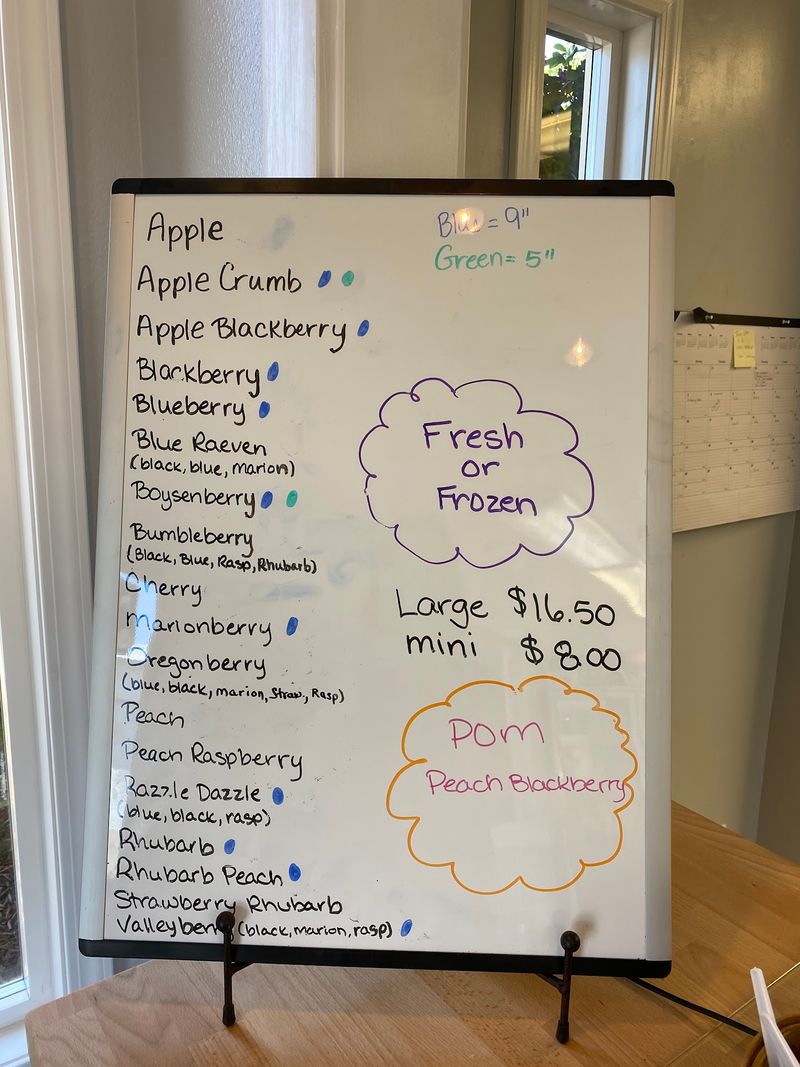 Apple
Apple Crumb
Apple Blackberry
Blackberry
Blueberry
Blue Raeven
(black, blue, marion)
Boysenberry
Bumbleberry
(Black, Blue, Rasp, Rhubarb)
Cherry
Marionberry
Oregonberry
(blue, black, marion, Straw., Rasp)
Peach
Peach Raspberry
Razzle Dazzle
(blue, black, rasp)
Rhubarb
Rhubarb Peach
Strawberry Rhubarb
Valleyberry (black, marion, rasp)
Blue = 9"
Green = 5"
Fresh
or
Frozen
Large $16.50
mini $8.00
POM
Peach Blackberry